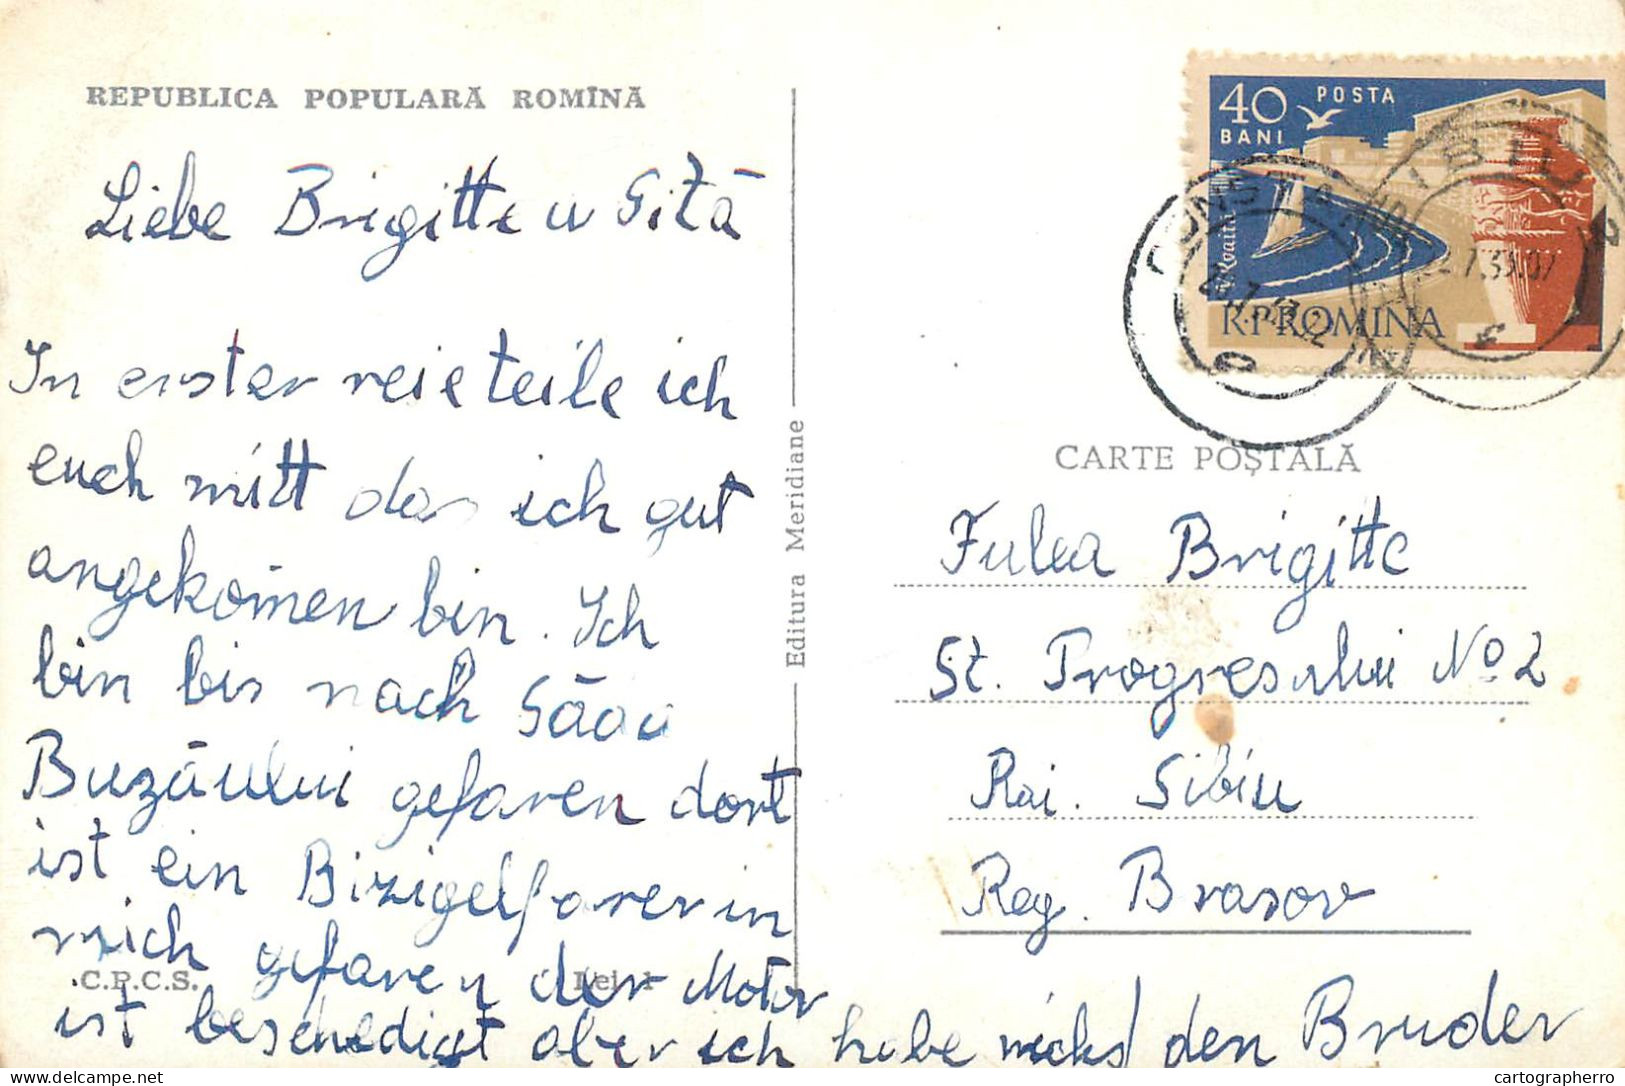 REPUBLICA POPULARĂ ROMÎNĂ
Liebe Brigitte u Gită
In erster reie teile ich
euch mitt das ich gut
angekom̄en bin. Ich
bin bis nach
Buzăului gefaren dort
ist ein Bizigelfarer in
mich gefaren der Motor
ist beschedigt aber ich habe nichs/ den Bruder
C.P.C.S.
Editura Meridiane
40 BANI POSTA
R.P.ROMINA
CARTE POȘTALĂ
Fulea Brigitte
St. Progresului No 2
Rai. Sibiu
Reg. Brasov
cartographerro